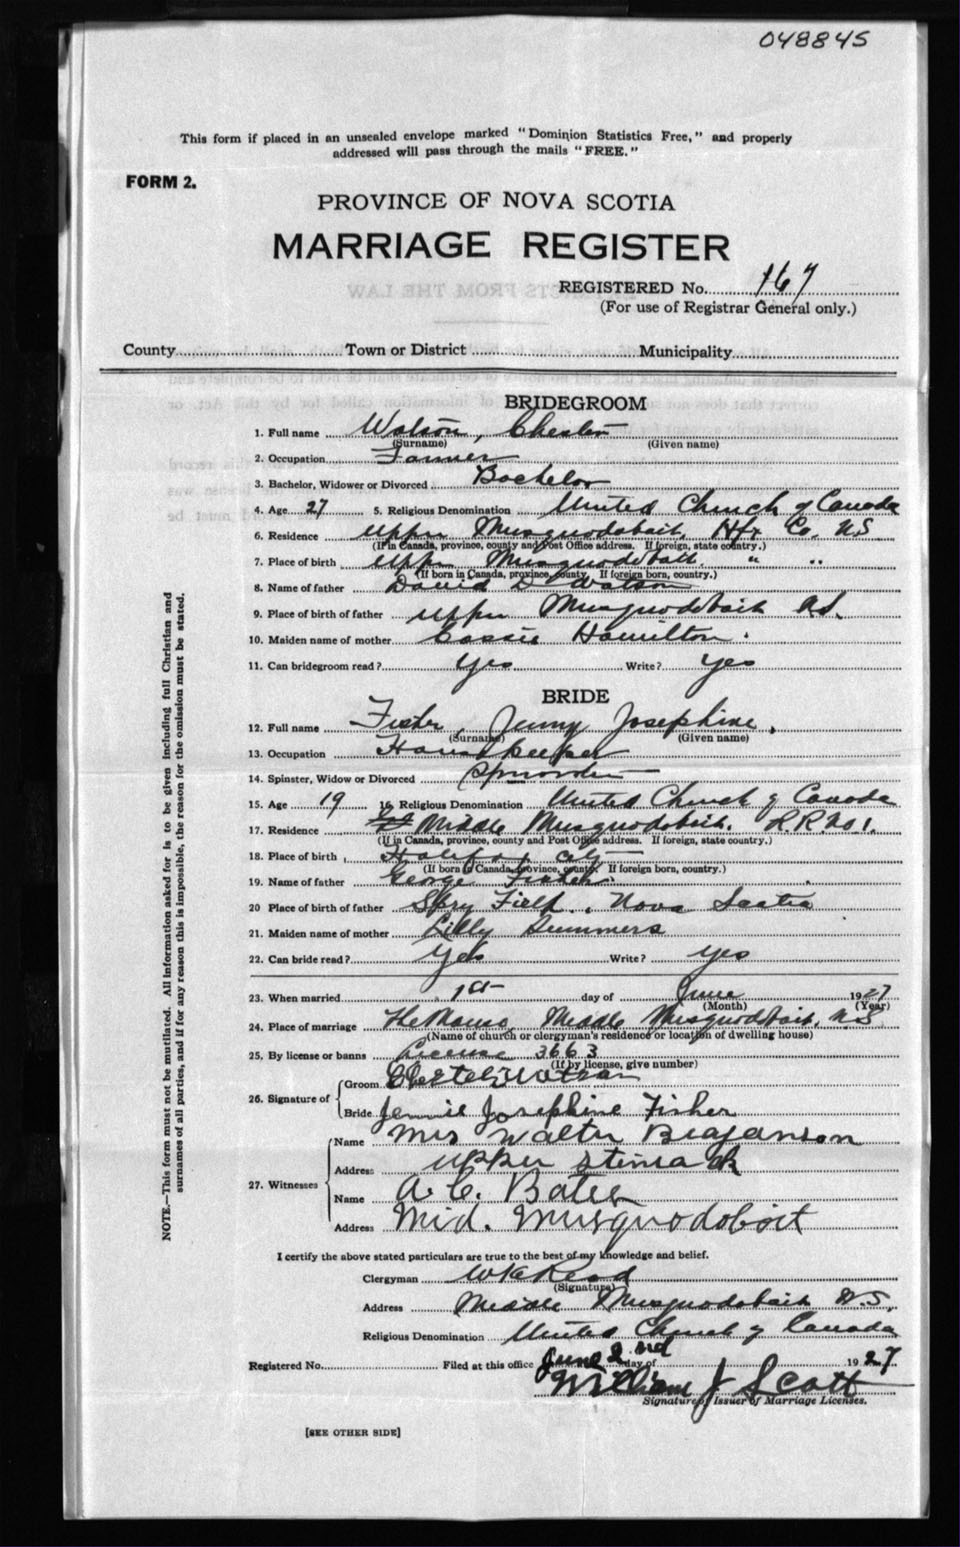 048845
This form if placed in an unsealed envelope marked "Dominion Statistics Free," and properly
addressed will pass through the mails "FREE."
FORM 2.
PROVINCE OF NOVA SCOTIA
MARRIAGE REGISTER
REGISTERED No. 167
(For use of Registrar General only.)
County Town or District Municipality
BRIDEGROOM
1. Full name Watson, Chester
(Surname) (Given name)
2. Occupation Farmer
3. Bachelor, Widower or Divorced Bachelor
4. Age 27 5. Religious Denomination United Church of Canada
6. Residence Upper Musquodoboit, Hfx Co. N.S
(If in Canada, province, county and Post Office address. If foreign, state country.)
7. Place of birth Upper Musquodoboit. " "
(If born in Canada, province, county. If foreign born, country.)
8. Name of father David D. Watson
9. Place of birth of father Upper Musquodoboit N.S.
10. Maiden name of mother Cassie Hamilton.
11. Can bridegroom read? Yes Write? Yes
BRIDE
12. Full name Fisher, Jenny Josephine,
(Surname) (Given name)
13. Occupation Housekeeper
14. Spinster, Widow or Divorced Spinster
15. Age 19 16. Religious Denomination United Church of Canada
17. Residence Middle Musquodoboit. R.R. No 1.
(If in Canada, province, county and Post Office address. If foreign, state country.)
18. Place of birth Halifax City
(If born in Canada, province, county. If foreign born, country.)
19. Name of father George Fisher.
20 Place of birth of father Spry Field, Nova Scotia
21. Maiden name of mother Lilly Summers
22. Can bride read? Yes Write? Yes
23. When married 1st day of June 1927
(Month) (Year)
24. Place of marriage The Manse, Middle Musquodoboit, N.S
(Name of church or clergyman's residence or location of dwelling house)
25. By license or banns License 3663
(If by license, give number)
26. Signature of
Groom Chester Watson
Bride Jennie Josephine Fisher
27. Witnesses
Name Mrs Walter
Address Upper
Name A. C. Bates
Address Mid. Musquodoboit
I certify the above stated particulars are true to the best of my knowledge and belief.
Clergyman Read
(Signature)
Address Middle Musquodoboit N.S.
Religious Denomination United Church of Canada
Registered No. Filed at this office June 2nd day of 1927
William J Scott
Signature of Issuer of Marriage Licenses.
[SEE OTHER SIDE]
NOTE.—This form must not be mutilated. All information asked for is to be given including full Christian and
surnames of all parties, and if for any reason this is impossible, the reason for the omission must be stated.